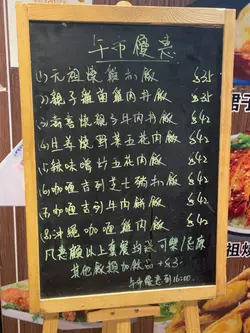 午市優惠
(1)元祖燒雞扒飯 $3
(2)親子雞蛋雞肉丼飯 $3
(3)壽喜燒親子牛肉丼飯 $42
(4)生姜燒野菜五花肉飯 $42
(5)辣味噌炒五花肉飯 $42
(6)咖喱吉列芝士豬扒飯 $42
(7)咖喱吉列牛肉餅飯 $42
(8)沖繩咖喱雞肉飯 $42
凡惠顧以上套餐均送可樂/忌廉
其他散損加飲品+$3
午市優惠到16:00